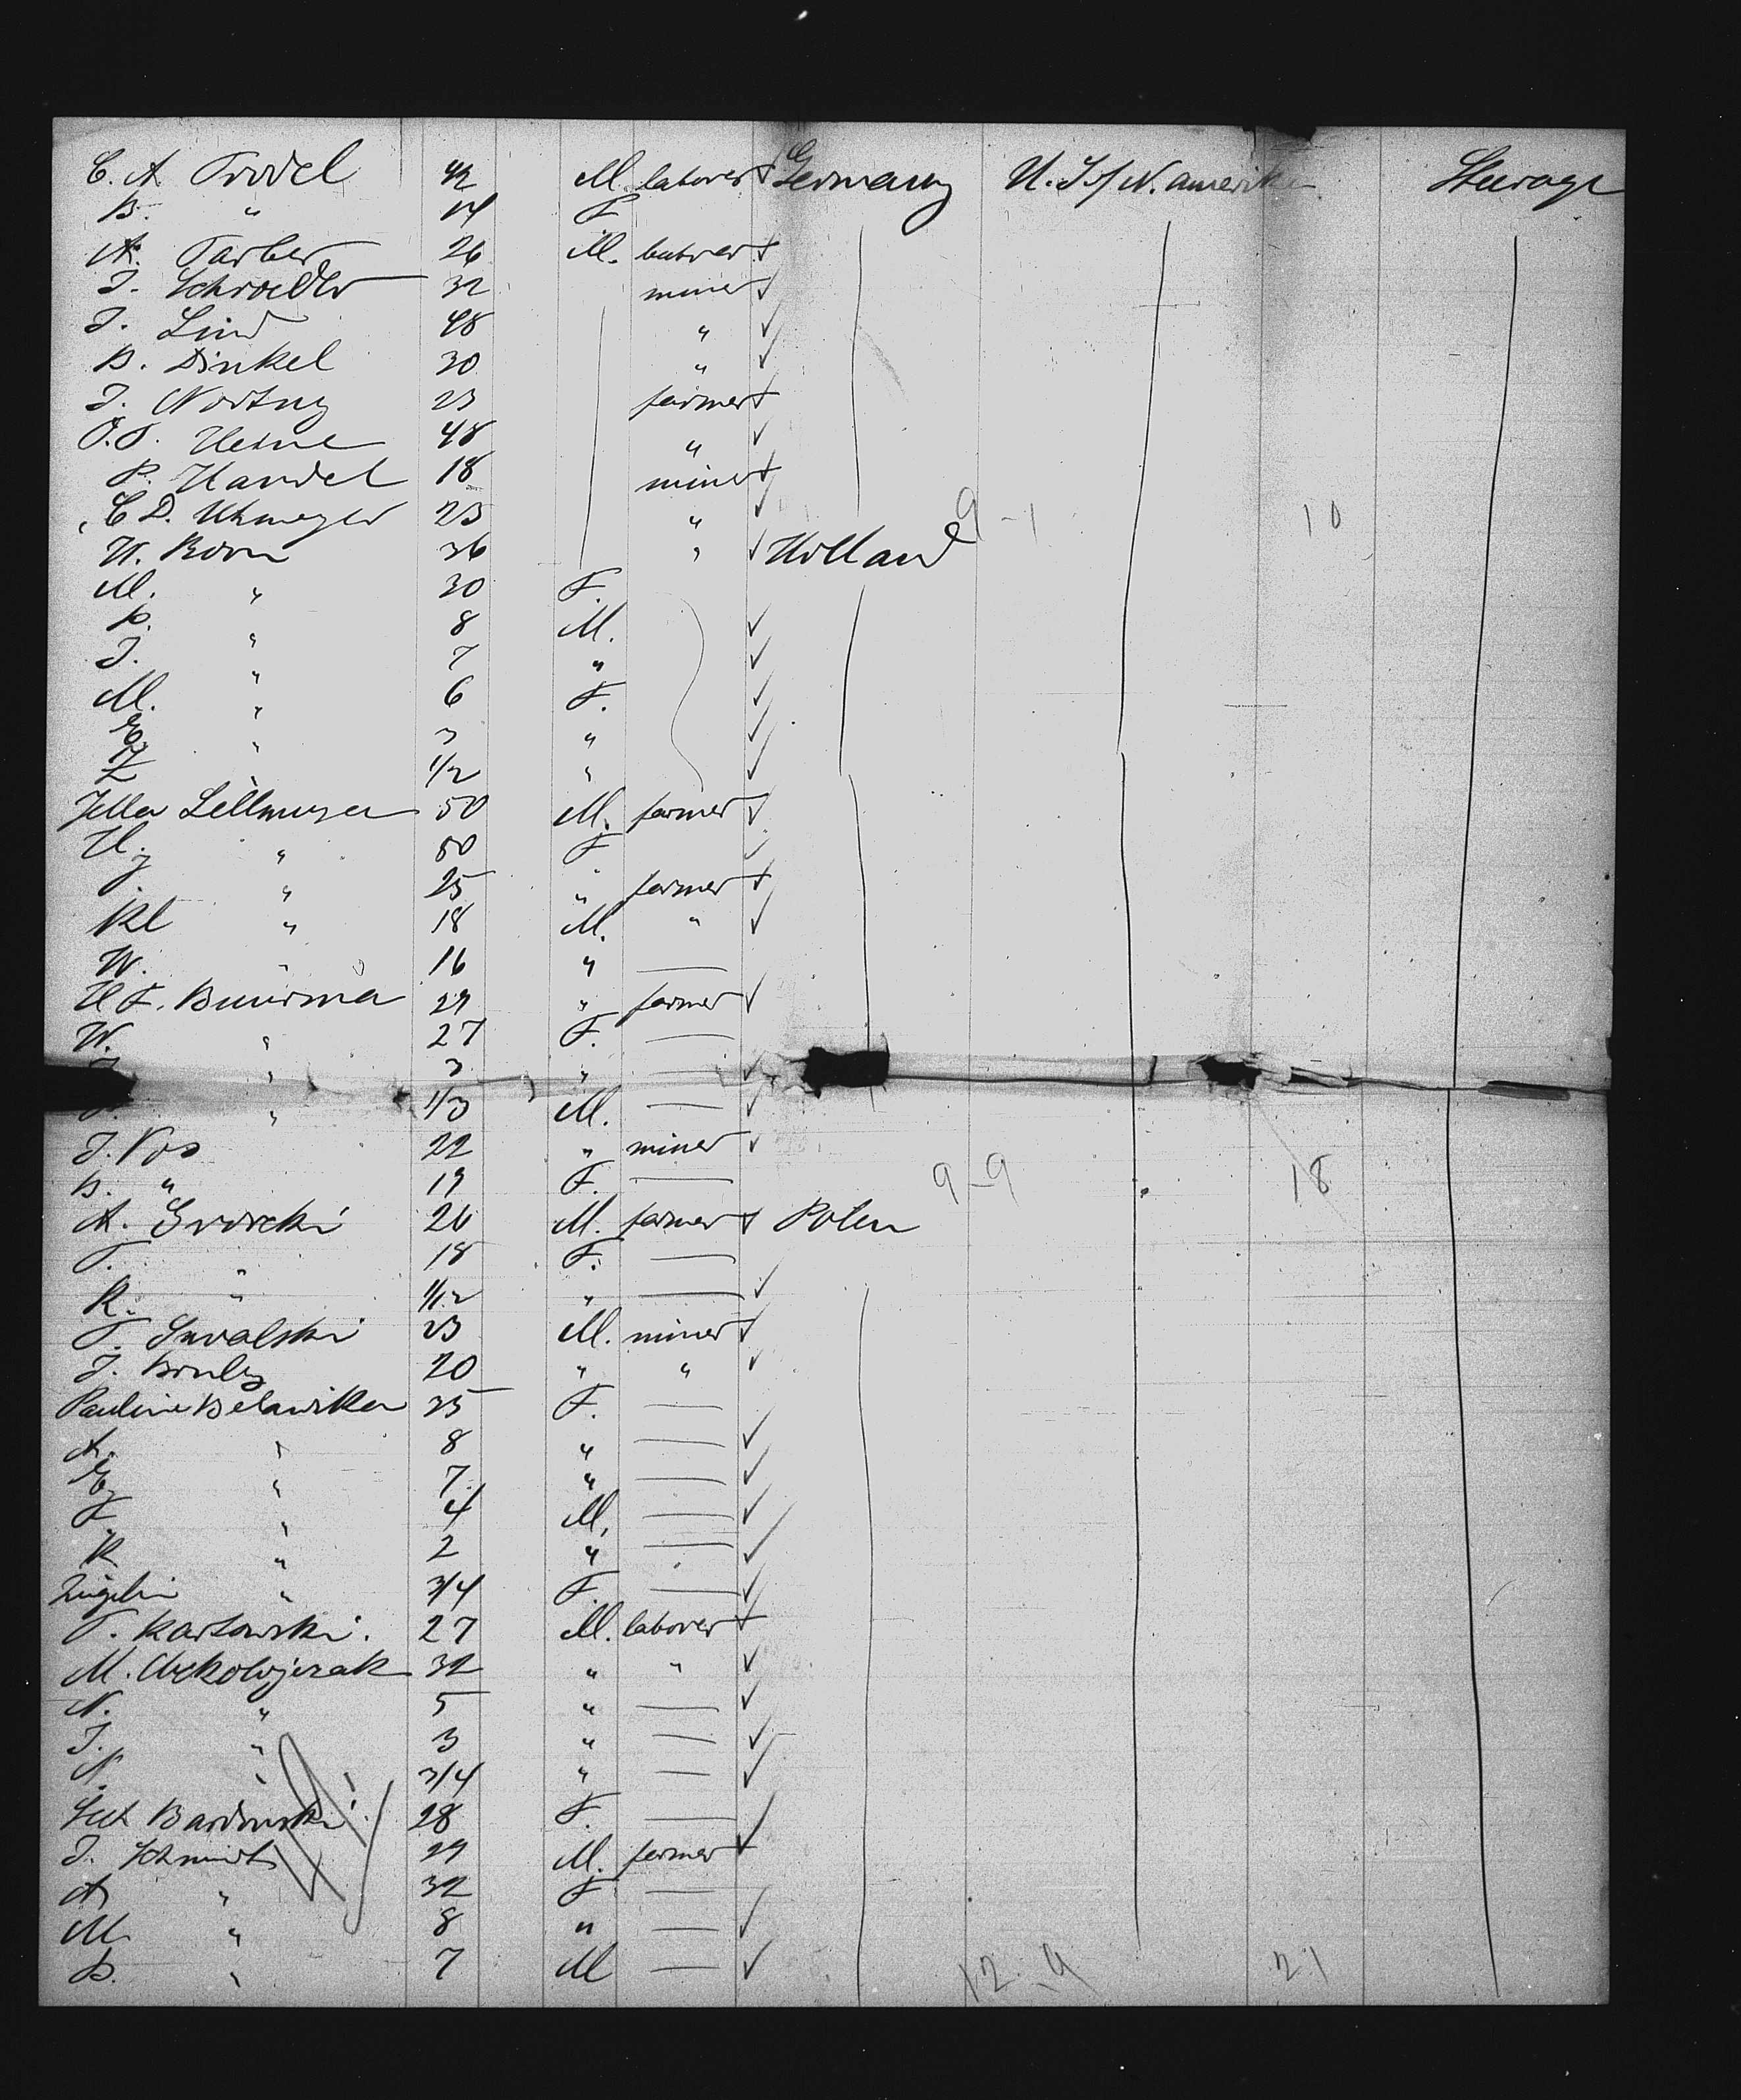 C. A. Trodel 42 M. laborer Germany U.S. of N. amerika Steerage
B. " 14 F
A. Farber 26 M. laborer
J. Schroeder 32 miner
J. Lind 48 "
B. Dinkel 30 "
J. Nortny 23 farmer
48 "
P. Handel 18 miner
C D. Uhmeyer 25 " 9-1 10
H. Born 36 " Holland
M. " 30 F.
B. " 8 M.
J. " 7 "
M. " 6 F.
E. " 3 "
Z " 1/2 "
Jelle Lellmeyer 50 M. farmer
H. " 50 F
J. " 25 " farmer
Kl " 18 M. "
W. " 16 " —
H F. Buurma 29 " farmer
W. " 27 F. —
" 3 " —
" 1/3 M. —
J. Vos 22 " miner
B. " 19 F. — 9-9 18
A. Gvorcki 26 M. farmer Polen
T. " 18 F. —
R. " 1/12 " —
T. Suvalski 23 M. miner
J. 20 " "
Pauline Belawska 35 F. —
A. " 8 " —
E. " 7 " —
F. " 4 M. —
R " 2 " —
" 3/4 F. —
T. Karlowski. 27 M. laborer
M. 32 " "
N. " 5 " —
J. " 3 " —
N. " 3/4 " —
Bardowski 28 F. —
J. Schmidt 29 M. farmer
A " 32 F —
M. " 8 " —
B. " 7 M — 12-9 21